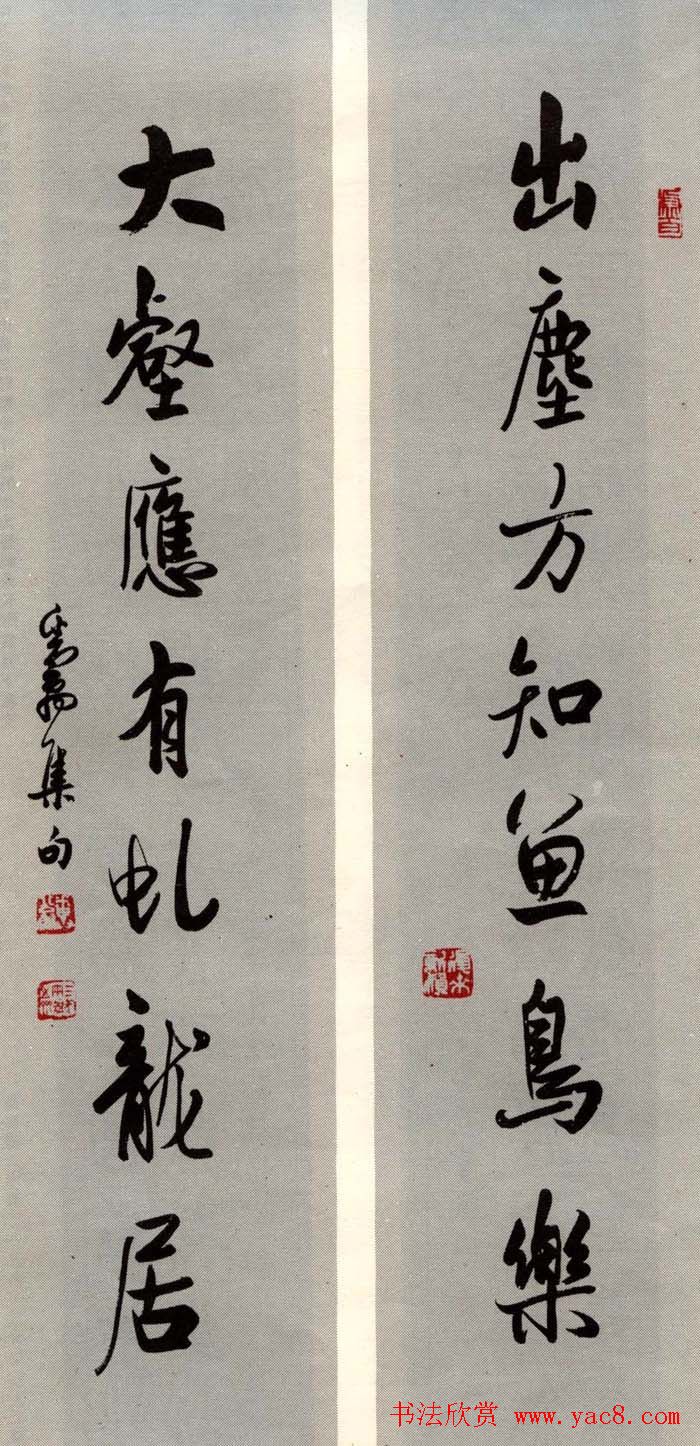 出塵方知魚鳥樂
大壑應有虬龍居
集句
书法欣赏 www.yac8.com